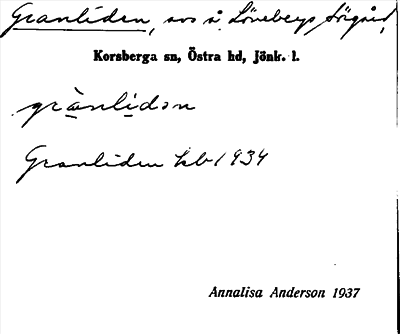 Granliden, avs å Löneberg Sörgård,
Korsberga sn, Östra hd, Jönk. l.
grànlidən
Granliden kb 1934
Annalisa Anderson 1937